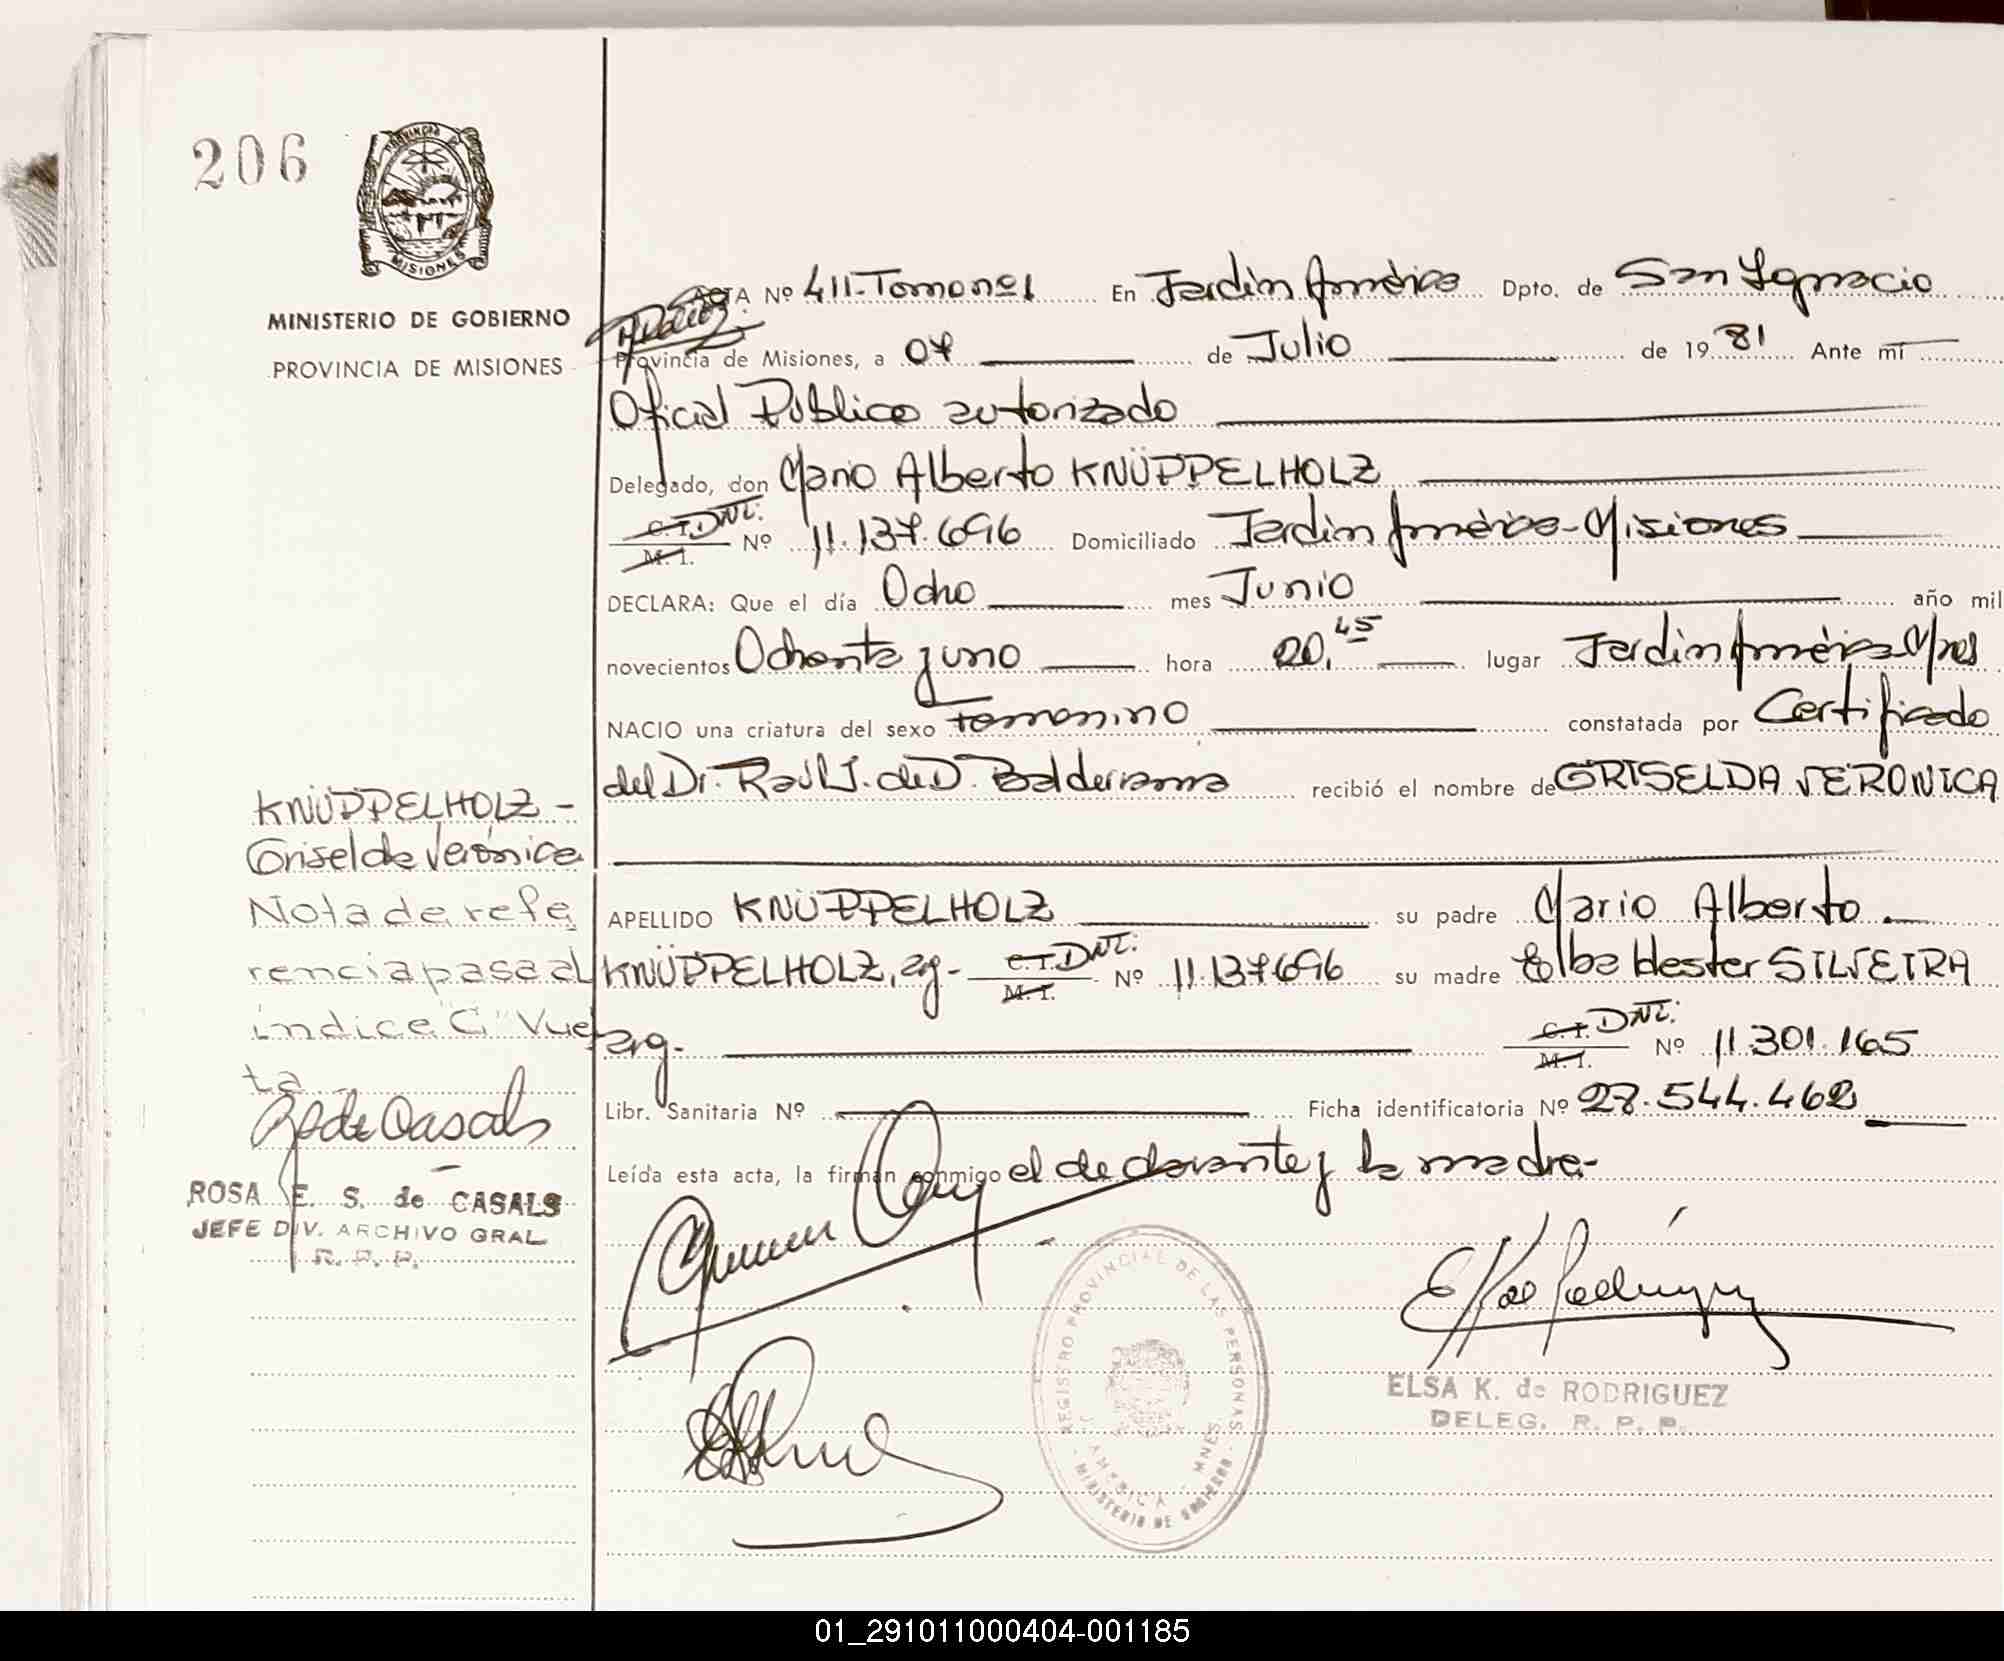 206
PROVINCIA
MISIONES
MINISTERIO DE GOBIERNO
PROVINCIA DE MISIONES
ACTA Nº 411-Tomo nº 1 En Jardín América Dpto. de San Ignacio
Provincia de Misiones, a 07 de Julio de 1981 Ante mí
Oficial Público autorizado
Delegado, don Mario Alberto KNÜPPELHOLZ
C.I. DNI. M.I. Nº 11.137.696 Domiciliado Jardín América-Misiones
DECLARA: Que el día Ocho mes Junio año mil
novecientos Ochenta y uno hora 20,45 lugar Jardín América Mnes
NACIO una criatura del sexo Femenino constatada por Certificado
del Dr. Raúl J. de D. Balderrama recibió el nombre de GRISELDA VERONICA
KNÜPPELHOLZ -
Griselda Verónica
APELLIDO KNÜPPELHOLZ su padre Mario Alberto
KNÜPPELHOLZ, arg- C.I. DNI: M.I. Nº 11.137.696 su madre Elba Hester SILVEIRA
arg. C.I. DNI: M.I. Nº 11.301.165
Libr. Sanitaria Nº Ficha identificatoria Nº 28.544.462
Leída esta acta, la firman conmigo el declarante y la madre.-
Nota de refe
rencia pasa al
indice "C" Vuel
ta
R E de Casals
ROSA E. S. de CASALS
JEFE DIV. ARCHIVO GRAL
R. P. P.
REGISTRO PROVINCIAL DE LAS PERSONAS
J. AMERICA - MNES
MINISTERIO DE GOBIERNO
E K de Rodriguez
ELSA K. de RODRIGUEZ
DELEG. R. P. P.
01_291011000404-001185